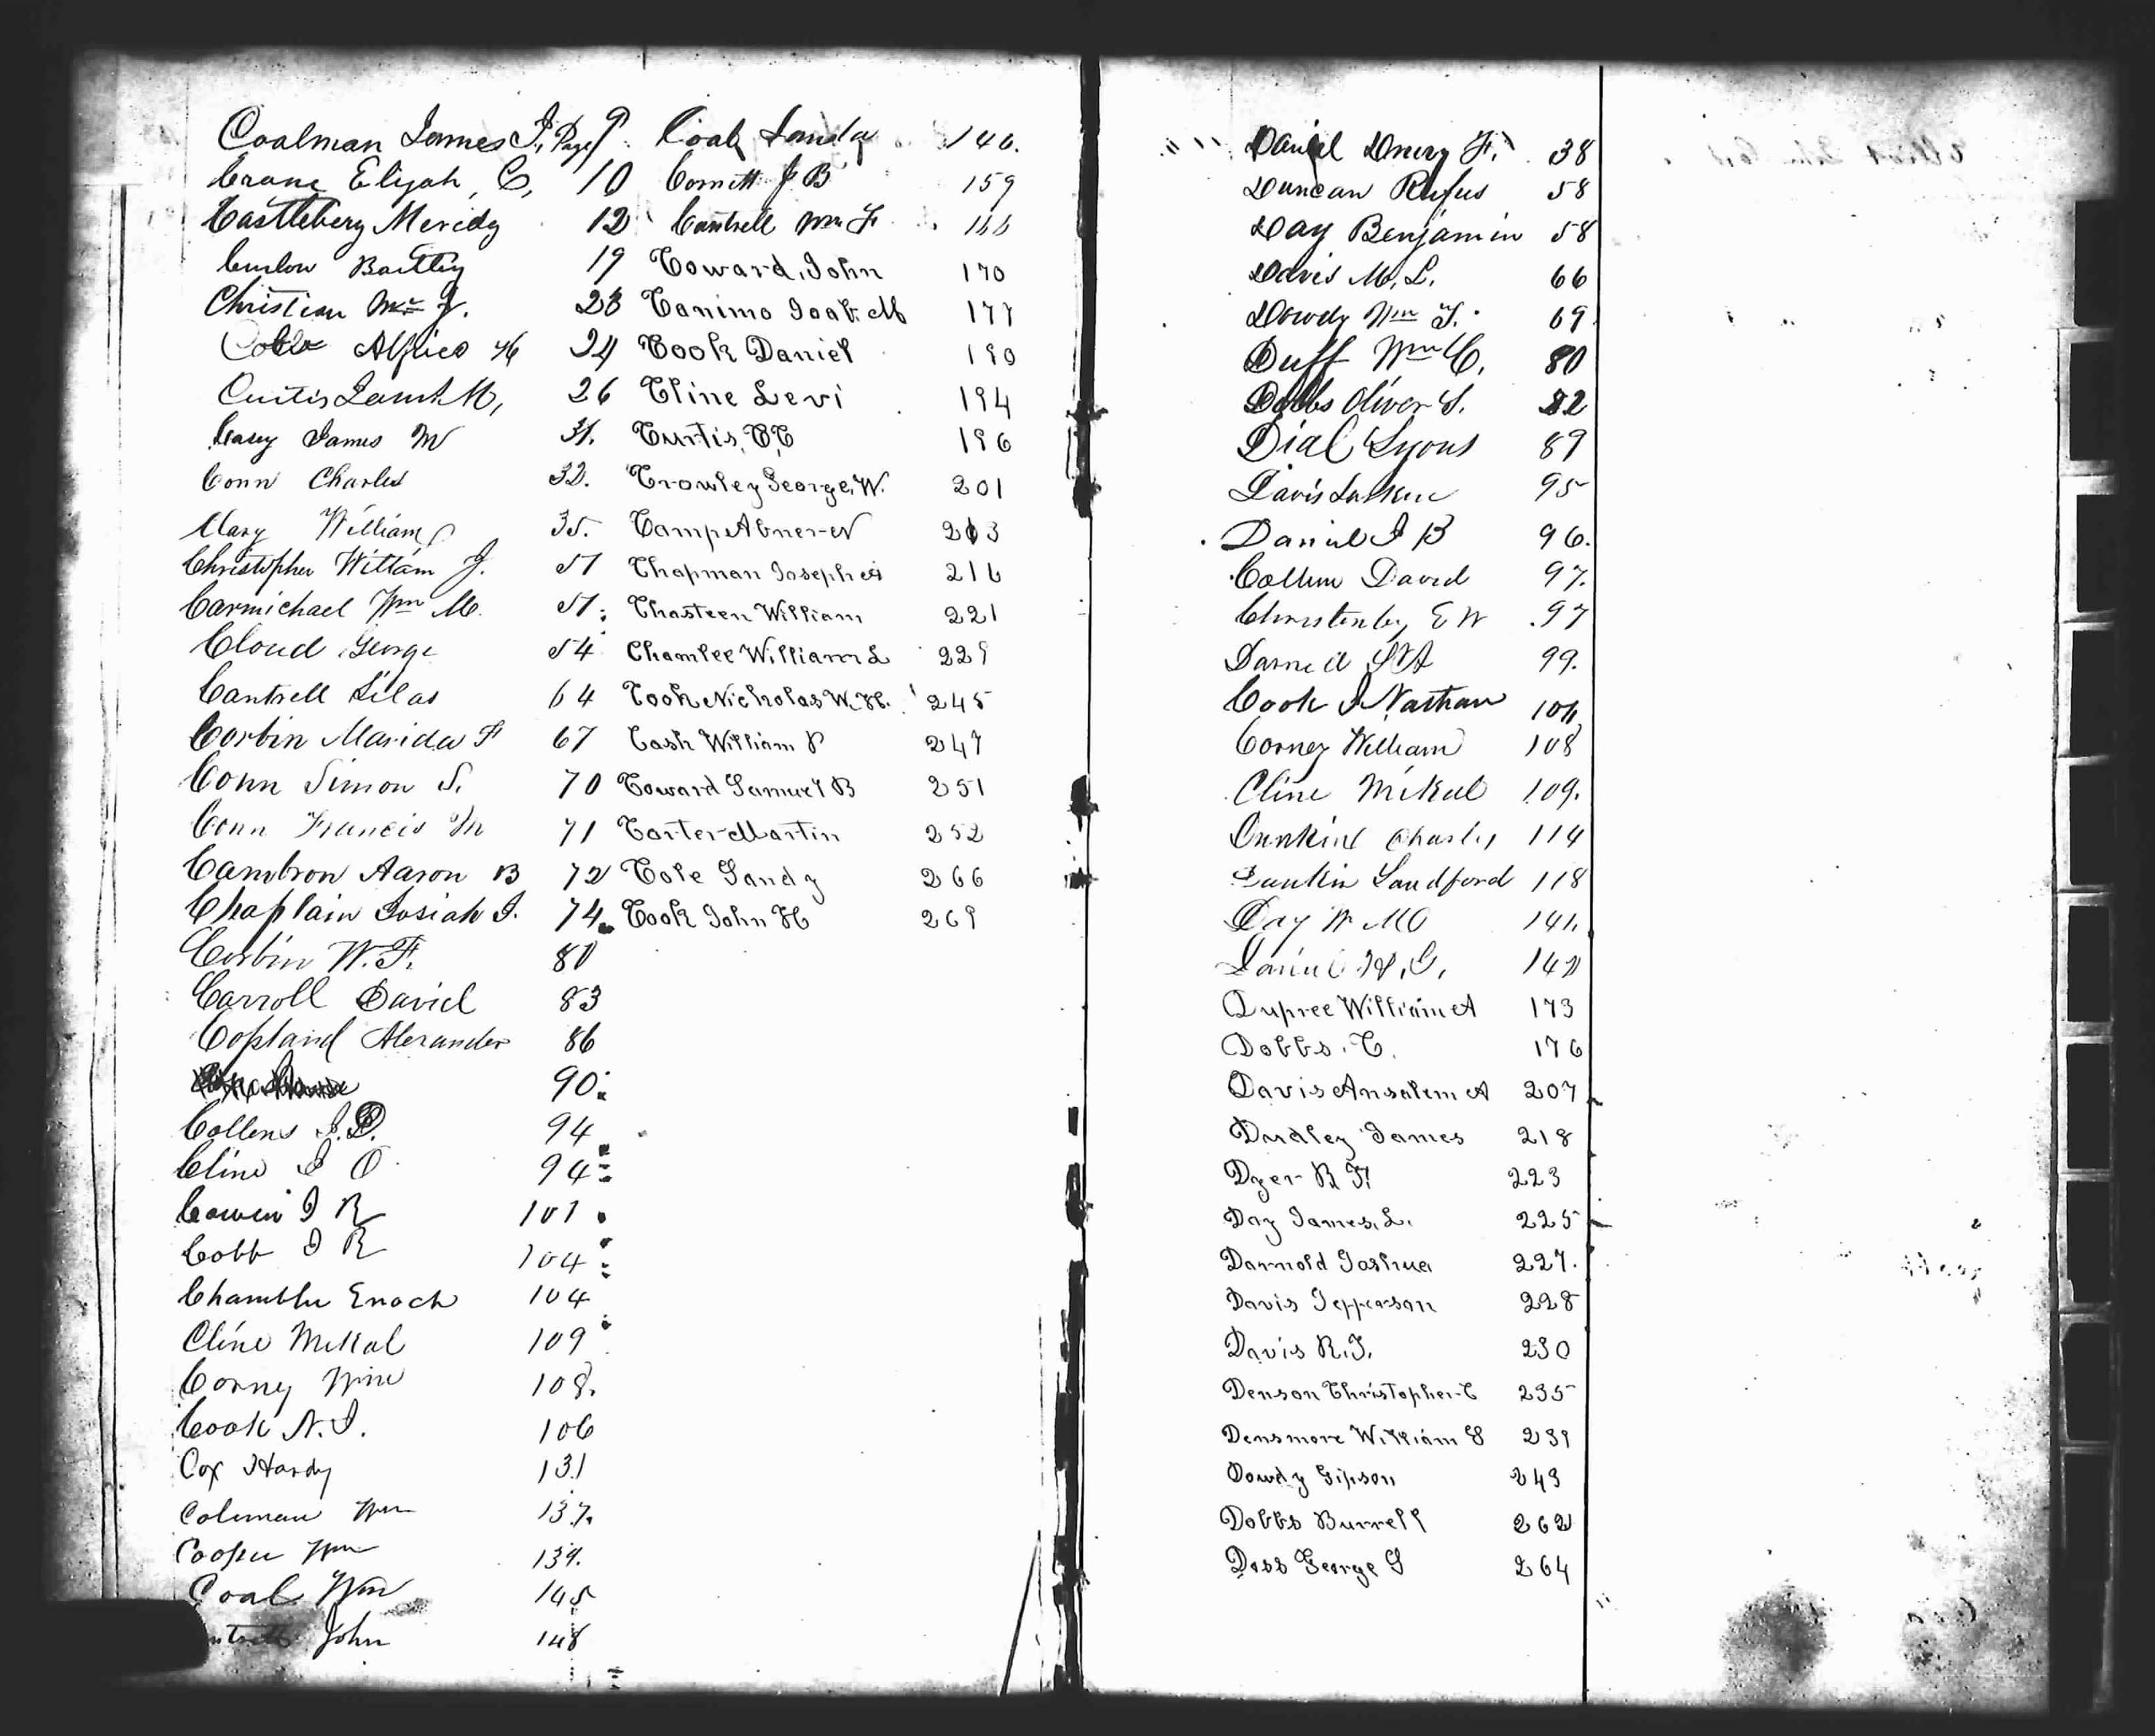 Coalman James J. Page 9
Crane Elijah C, 10
Castlebery Meredy 12
Curlow Bartley 19
Christian Wm J. 23
Alfred H 24
Curtis M, 26
Casey James M 31.
Conn Charles 32.
Clary William 35.
Christopher William J. 51
Carmichael Wm M. 51
Cloud George 54
Cantrell Silas 64
Corbin Marida F 67
Conn Simon S. 70
Conn Francis M 71
Cambron Aaron B 72
Chaplain Josiah J. 74
Corbin W. F. 80
Carroll David 83
Copland Alexander 86
90
Collens J. D. 94
Cline J O 94
Cowen J R 101
Cobb J R 104
Chamblee Enoch 104
Cline Mikal 109
Corney Wm 108.
Cook N. J. 106
Cox Hardy 131
Coleman Wm 137.
Cooper Wm 139.
Coal Wm 145
John 148
Coal 146.
Cornett J B 159
Cantrell Wm F 166
Coward, John 170
Canimo M 177
Cook Daniel 190
Cline Levi 194
Curtis, C, C 196
Crowley George, W. 201
Camp Abner N 213
Chapman Joseph 216
Chasteen William 221
Chamlee William L 229
Cook Nicholas W. H. 245
Cash William P 247
Coward Samuel B 251
Carter Martin 252
Cole Sandy 266
Cook John H 269
Daniel Drury F. 38
Duncan Rufus 58
Day Benjamin 58
Davis M. L. 66
Dowdy Wm T. 69
Duff Wm C. 80
Dobbs Oliver S. 82
Dial Lyons 89
Davis 95
Daniel J B 96.
Collum David 97.
Christenby E W 97
Darnell 99.
Cook J Nathan 106
Corney William 108
Cline Mikal 109.
Dunkin Charles 114
Dunkin Landford 118
Day W M O 141.
Daniel 142
Dupree William A 173
Dobbs, C. 176
Davis Ansalem A 207
Dardley James 218
Dyer R F 223
Day James, L. 225
Darnold Joshua 227.
Davis Jepperson 228
Davis R. J. 230
Denson Christopher C 235
Densmore William S 239
Dowdy Gipson 243
Dobbs Burrell 262
Doss George G 264